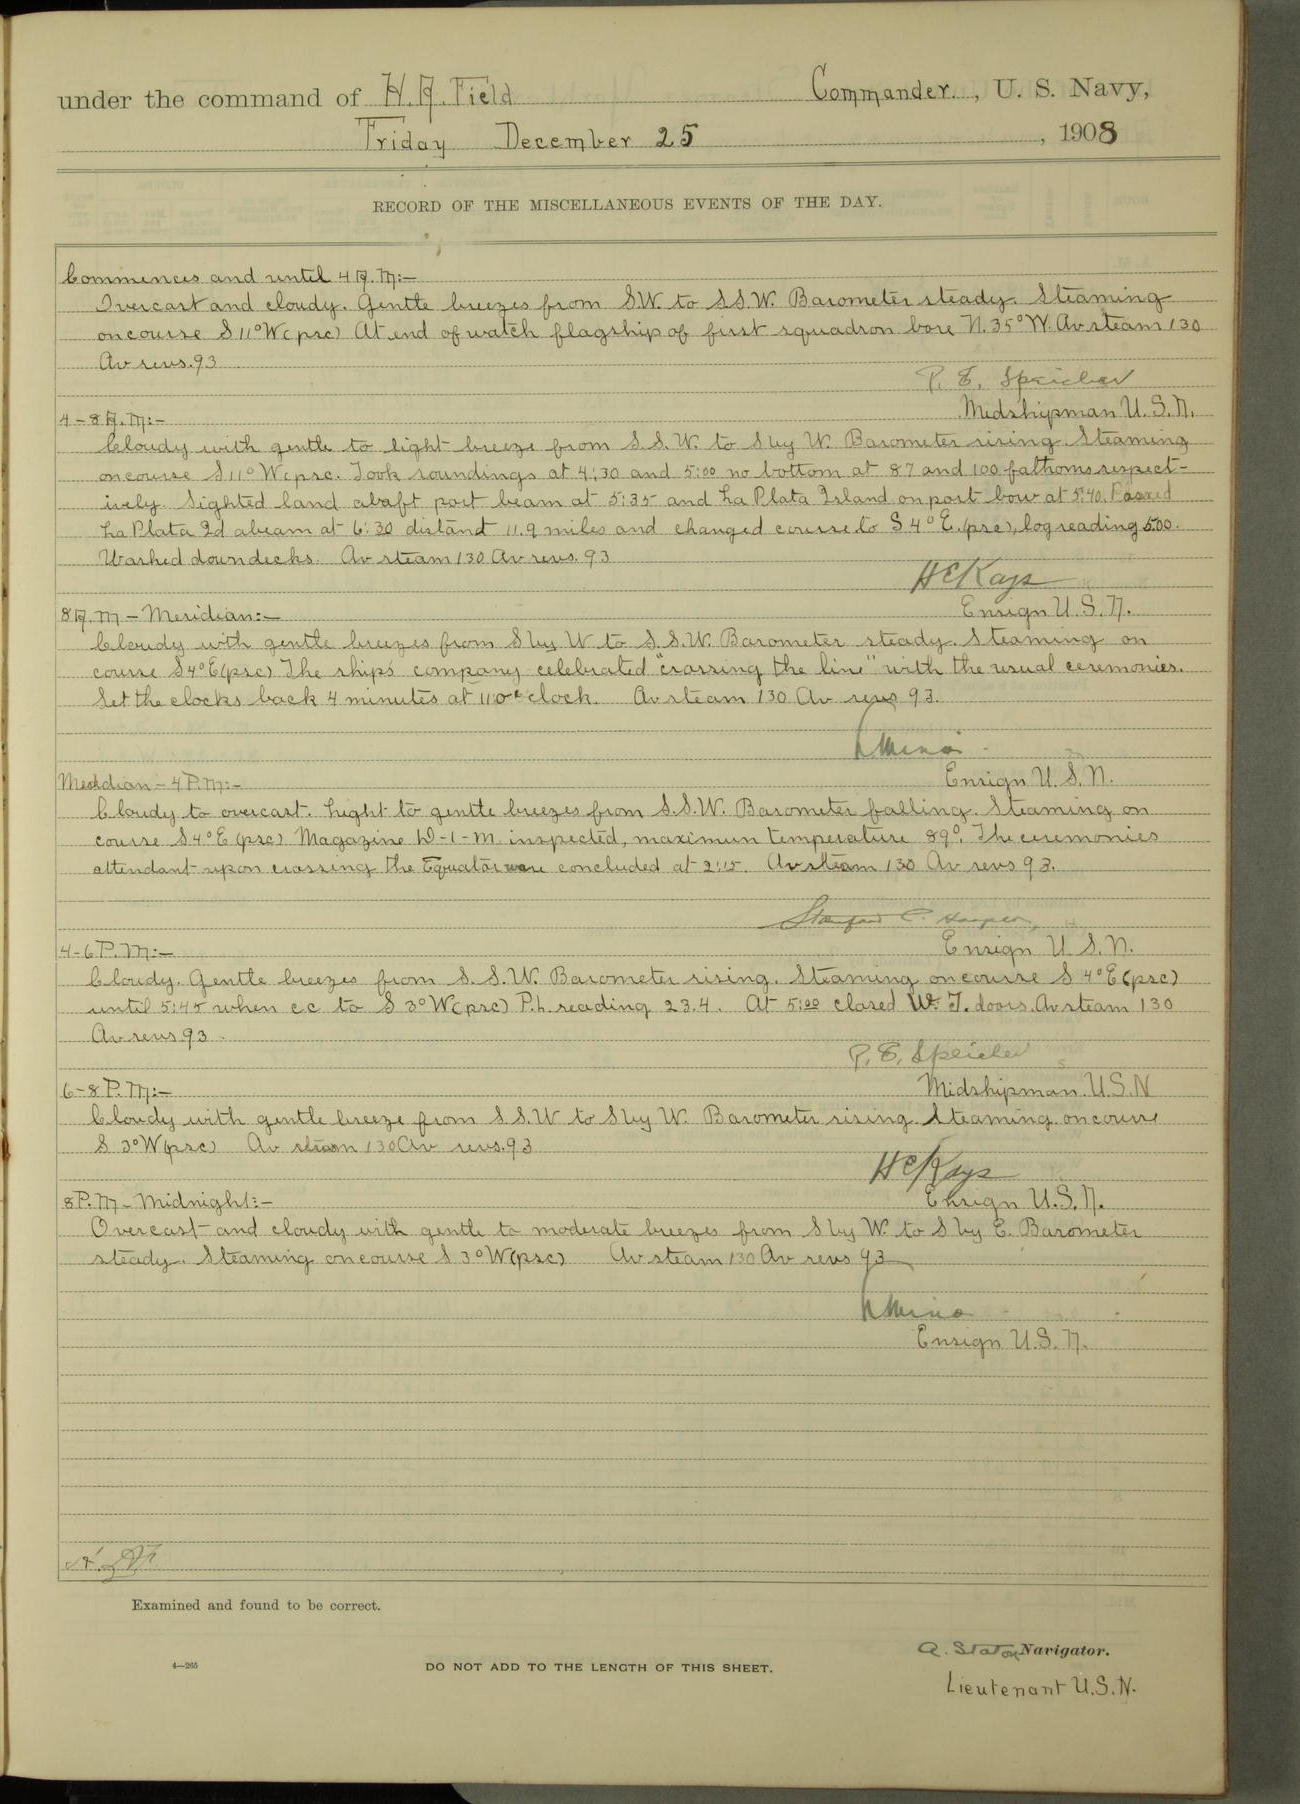 under the command of H. A. Field Commander, U. S. Navy,
Friday December 25, 1908
RECORD OF THE MISCELLANEOUS EVENTS OF THE DAY.
Commences and until 4 A.M:—
Overcast and cloudy. Gentle breezes from S.W. to S.S.W. Barometer steady. Steaming
on course S 11° W (psc) At end of watch flagship of first squadron bore N. 35° W. Av steam 130
Av revs. 93
P. E. Speicher
Midshipman U.S.N.
4-8 A.M:—
Cloudy with gentle to light breeze from S.S.W. to S by W. Barometer rising. Steaming
on course S 11° W (psc. Took soundings at 4:30 and 5:00 no bottom at 87 and 100 fathoms respect-
ively. Sighted land abaft port beam at 5:35 and La Plata Island on port bow at 5:40. Passed
La Plata Id abeam at 6:30 distant 11.9 miles and changed course to S 4° E. (psc), log reading 5.00.
Washed down decks. Av steam 130 Av revs. 93
H E Kays
Ensign U.S.N.
8 A.M - Meridian:—
Cloudy with gentle breezes from S by W to S.S.W. Barometer steady. Steaming on
course S 4° E (psc) The ship's company celebrated "crossing the line" with the usual ceremonies.
Set the clocks back 4 minutes at 11 o'clock. Av steam 130 Av revs 93.
Ensign U.S.N.
Meridian - 4 P.M:-
Cloudy to overcast. Light to gentle breezes from S.S.W. Barometer falling. Steaming on
course S 4° E (psc) Magazine D-1-M inspected, maximun temperature 89°. The ceremonies
attendant upon crossing the Equator were concluded at 2:15. Av steam 130 Av revs 93.
Ensign U.S.N.
4-6 P.M:—
Cloudy. Gentle breezes from S.S.W. Barometer rising. Steaming on course S 4° E (psc)
until 5:45 when c.c to S 3° W (psc) P.L. reading 23.4. At 5:00 closed W. T. doors. Av steam 130
Av revs 93.
P. E. Speicher
Midshipman. U.S.N
6-8 P.M:—
Cloudy with gentle breeze from S.S.W to S by W. Barometer rising. Steaming on course
S 3° W (psc) Av steam 130 Av revs. 93
H E Kays
Ensign U.S.N.
8 P.M - Midnight:—
Overcast and cloudy with gentle to moderate breezes from S by W. to S by E. Barometer
steady. Steaming on course S 3° W (psc) Av steam 130 Av revs 93
Ensign U.S.N.
Examined and found to be correct.
A. Staton Navigator.
4—265
DO NOT ADD TO THE LENGTH OF THIS SHEET.
Lieutenant U.S.N.